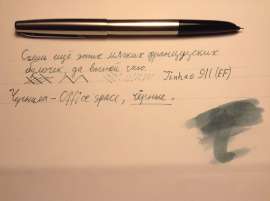 Съешь ещё этих мягких французских
булочек, да выпей чаю.
Jinhao 911 (EF)
Чернила - Office space, чёрные.